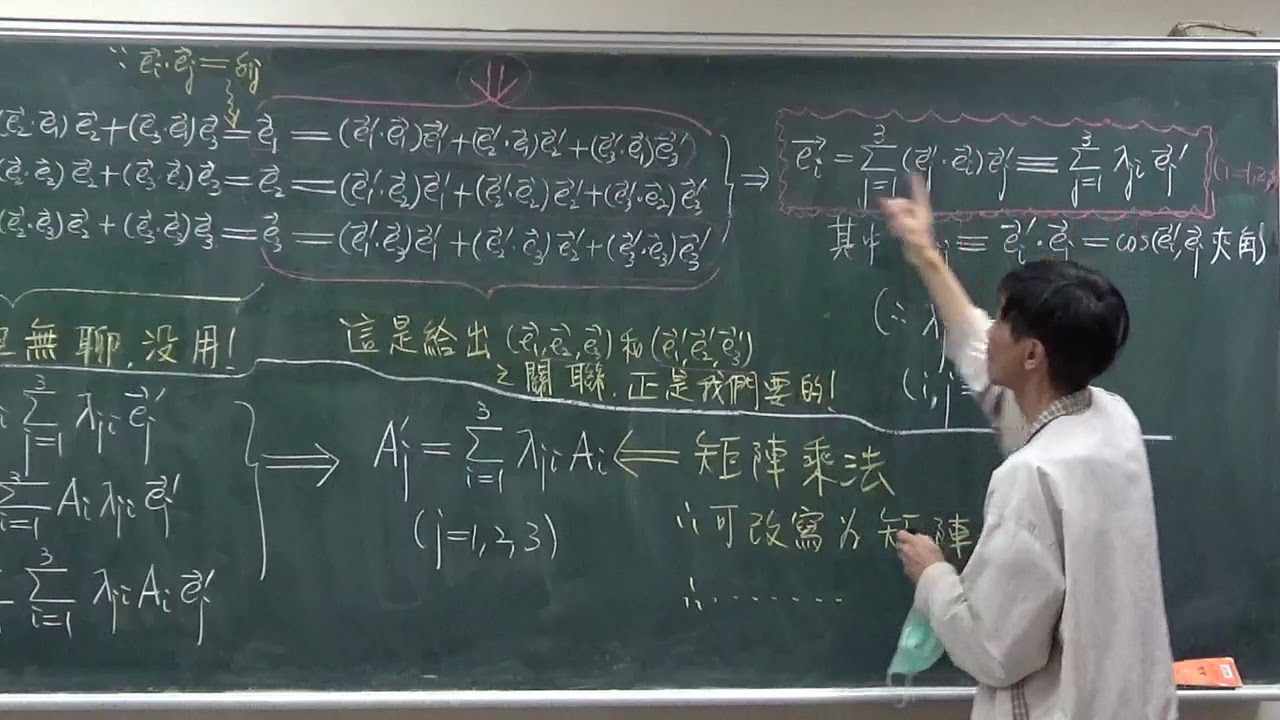 ∵ e⃗ᵢ·e⃗ⱼ=δᵢⱼ
(e⃗₂·e⃗₁)e⃗₂+(e⃗₃·e⃗₁)e⃗₃=e⃗₁=(e⃗₁′·e⃗₁)e⃗₁′+(e⃗₂′·e⃗₁)e⃗₂′+(e⃗₃′·e⃗₁)e⃗₃′
(e⃗₂·e⃗₂)e⃗₂+(e⃗₃·e⃗₂)e⃗₃=e⃗₂=(e⃗₁′·e⃗₂)e⃗₁′+(e⃗₂′·e⃗₂)e⃗₂′+(e⃗₃′·e⃗₂)e⃗₃′
(e⃗₂·e⃗₃)e⃗₂+(e⃗₃·e⃗₃)e⃗₃=e⃗₃=(e⃗₁′·e⃗₃)e⃗₁′+(e⃗₂′·e⃗₃)e⃗₂′+(e⃗₃′·e⃗₃)e⃗₃′
⇒ e⃗ᵢ=∑ⱼ₌₁³(e⃗ⱼ′·e⃗ᵢ)e⃗ⱼ′≡∑ⱼ₌₁³λⱼᵢe⃗ⱼ′ (i=1,2,
其中 ≡e⃗ᵢ′·e⃗ⱼ=cos(e⃗ᵢ′,e⃗ⱼ夾角)
(∵ λ
(i,j=
無聊,没用!
這是給出(e⃗₁,e⃗₂,e⃗₃)和(e⃗₁′,e⃗₂′,e⃗₃′)
之關聯,正是我們要的!
∑ⱼ₌₁³λⱼᵢe⃗ⱼ′
∑ᵢ₌₁³Aᵢλⱼᵢe⃗ⱼ′
∑ᵢ₌₁³λⱼᵢAᵢe⃗ⱼ′
⇒ Aⱼ′=∑ᵢ₌₁³λⱼᵢAᵢ⇐矩陣乘法
(j=1,2,3)
∴可改寫為矩陣
∴........